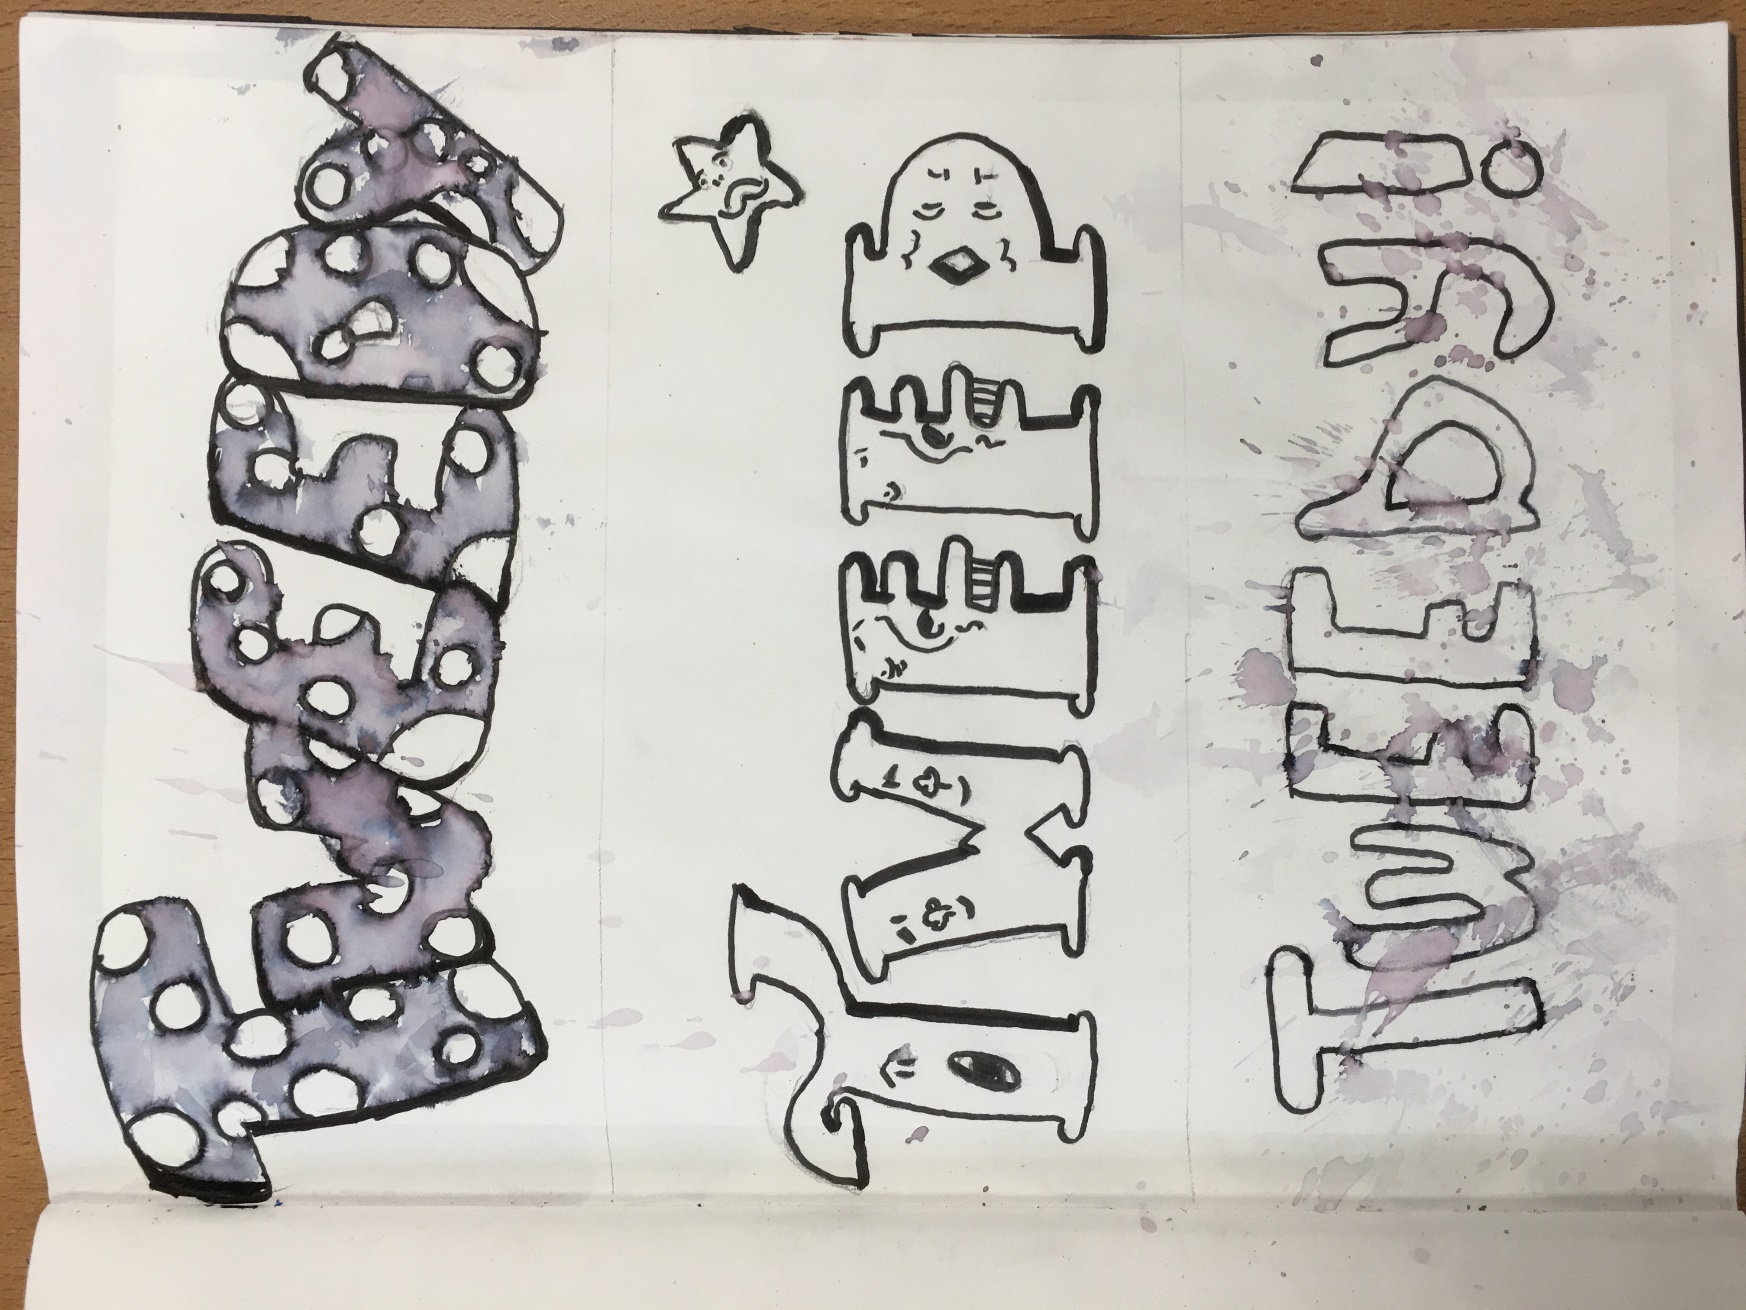 TWEEDY
TWEED
TWEEDY!